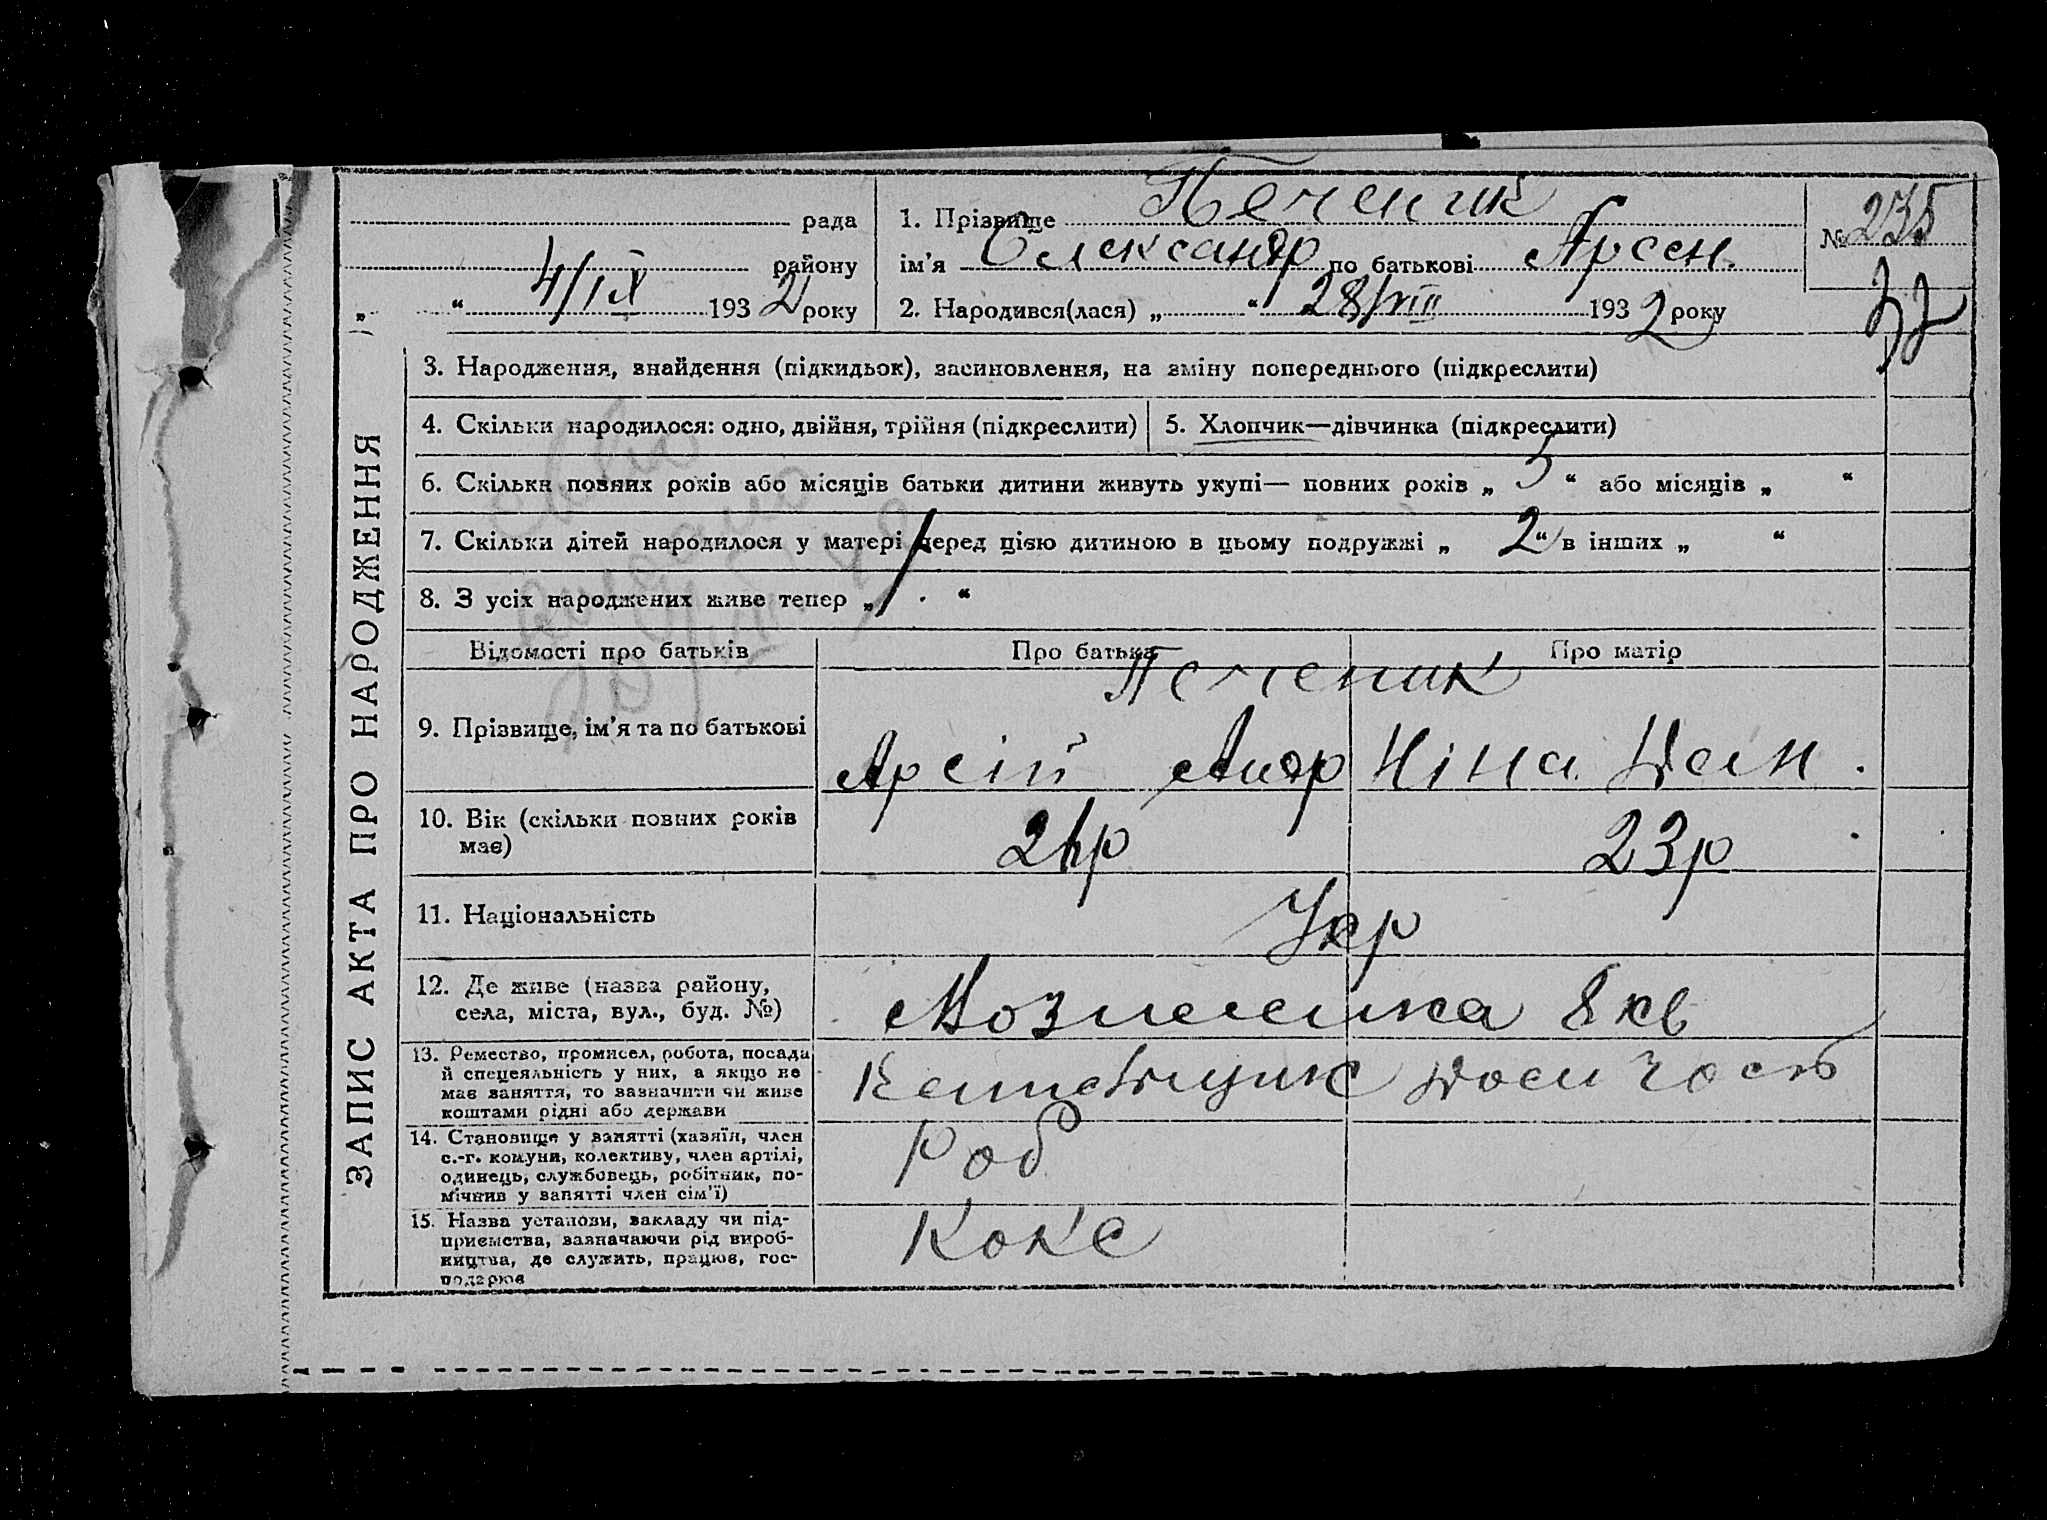 ЗАПИС АКТА ПРО НАРОДЖЕННЯ
рада
району
„ “ 4/IX 1932 року
1. Прізвище Печеник
ім’я Олександр по батькові Арсен.
2. Народився(лася) „ “ 28/VIII 1932 року
№ 235
3. Народження, знайдення (підкидьок), засиновлення, на зміну попереднього (підкреслити)
4. Скільки народилося: одно, двійня, трійня (підкреслити)
5. Хлопчик—дівчинка (підкреслити)
6. Скільки повних років або місяців батьки дитини живуть укупі— повних років „ 5 “ або місяців „ “
7. Скільки дітей народилося у матері перед цією дитиною в цьому подружжі „ 2 “ в інших „ “
8. З усіх народжених живе тепер „ 1 “
Відомості про батьків Про батька Про матір
Печеник
9. Прізвище, ім’я та по батькові Арсій Андр Ніна
10. Вік (скільки повних років
має)
23р
11. Національність Укр
12. Де живе (назва району,
села, міста, вул., буд. №)
8 кв
13. Ремество, промисел, робота, посада
й спецеяльність у них, а якщо не
має заняття, то зазначити чи живе
коштами рідні або держави
14. Становище у занятті (хазяїн, член
с.-г. комуни, колективу, член артілі,
одинець, службовець, робітник, по-
мічнив у занятті член сім’ї)
Роб
15. Назва установи, закладу чи під-
приємства, зазначаючи рід вироб-
ництва, де служить, працює, гос-
подарює
Кокс